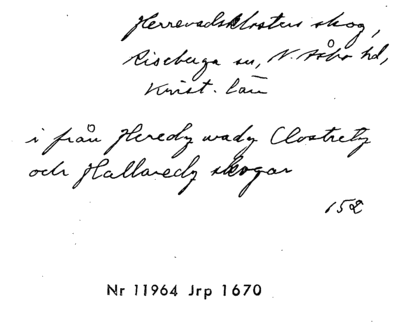 Herrevadsklosters skog,
Riseberga sn, N. Åsbo hd,
Krist. län
i från Heredz wadz Clostretz
och Hallaredz skogar
152
Nr 11964 Jrp 1670